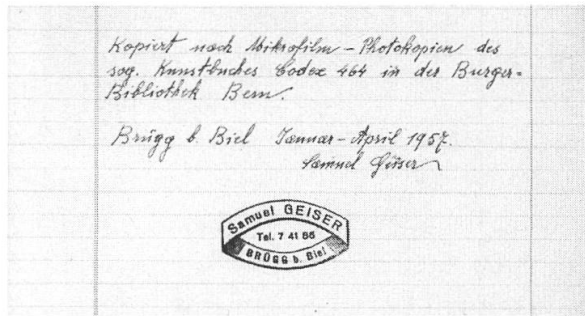 Kopiert nach Mikrofilm – Photokopien des
sog. Kunstbuches Codex 464 in der Burger-
Bibliothek Bern.
Brügg b. Biel Januar – April 1957.
Samuel Geiser
Samuel GEISER
Tel. 7 41 86
BRÜGG b. Biel